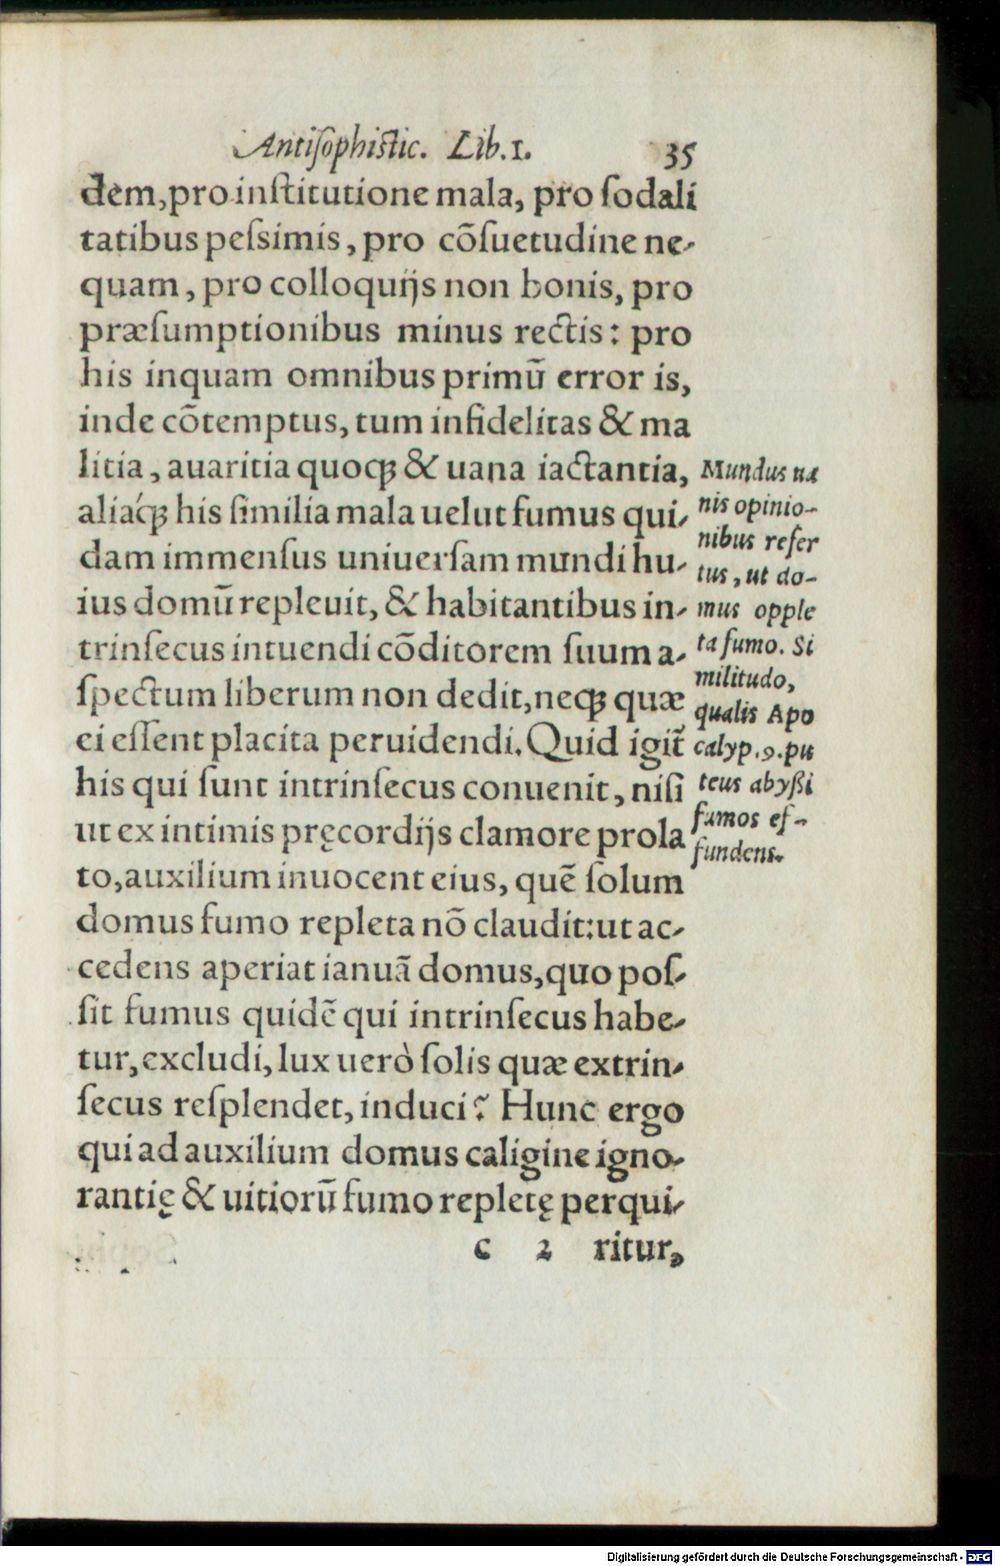 Antiſophiſtic. Lib.1. 35
dem, pro inſtitutione mala, pro ſodali
tatibus peſsimis, pro cõſuetudine ne-
quam, pro colloquijs non bonis, pro
præſumptionibus minus rectis: pro
his inquam omnibus primũ error is,
inde cõtemptus, tum infidelitas & ma
litia, auaritia quoq́; & uana iactantia,
aliáq; his ſimilia mala uelut fumus qui-
dam immenſus uniuerſam mundi hu-
ius domũ repleuit, & habitantibus in-
trinſecus intuendi cõditorem ſuum a-
ſpectum liberum non dedit, neq; quæ
ei eſſent placita peruidendi. Quid igit̃
his qui ſunt intrinſecus conuenit, niſi
ut ex intimis pręcordijs clamore prola
to, auxilium inuocent eius, quẽ ſolum
domus fumo repleta nõ claudit: ut ac-
cedens aperiat ianuã domus, quo poſ-
ſit fumus quidẽ qui intrinſecus habe-
tur, excludi, lux uerò ſolis quæ extrin-
ſecus reſplendet, induci? Hunc ergo
qui ad auxilium domus caligine igno-
rantię & uitiorũ fumo repletę perqui-
c 2 ritur,
Mundus ua
nis opinio-
nibus refer
tus, ut do-
mus opple
ta fumo. Si
militudo,
qualis Apo
calyp.9.pu
teus abyßi
fumos ef-
fundens.
Digitalisierung gefördert durch die Deutsche Forschungsgemeinschaft - DFG